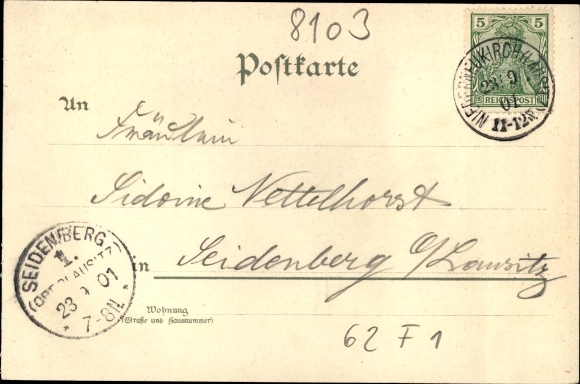 8103
5 5
REICHSPOST
23 9
01
11-12V
Postkarte
An
Fräulein
Sidonie Nettelhorst
in Seidenberg O/Lausitz
SEIDENBERG
1.
(OBERLAUSITZ)
23 9 01
* 7-8N. *
Wohnung
(Straße und Hausnummer)
62 F 1